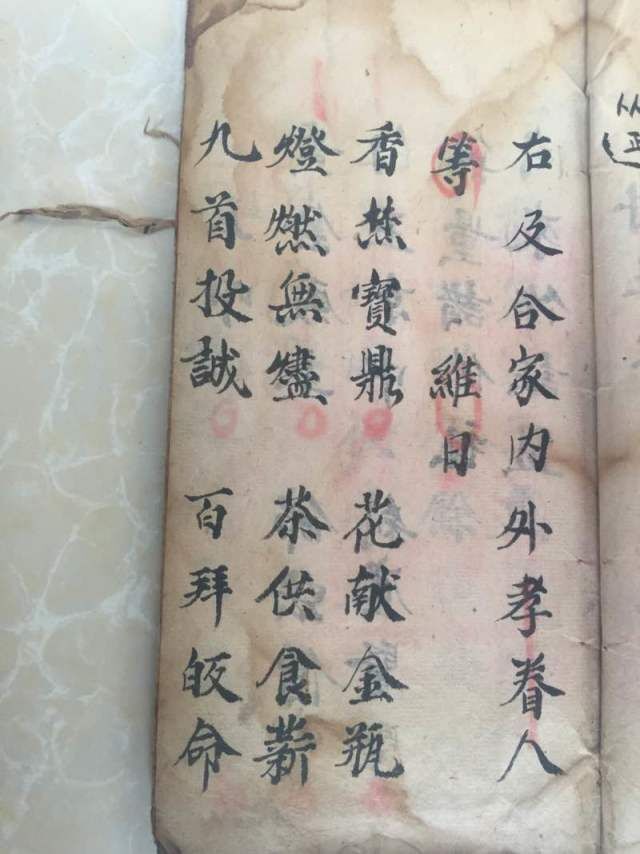 右及合家内外孝眷人
等 維日
香焚寶鼎 花献金瓶
燈燃無燼 茶供食薪
九首投誠 百拜皈命